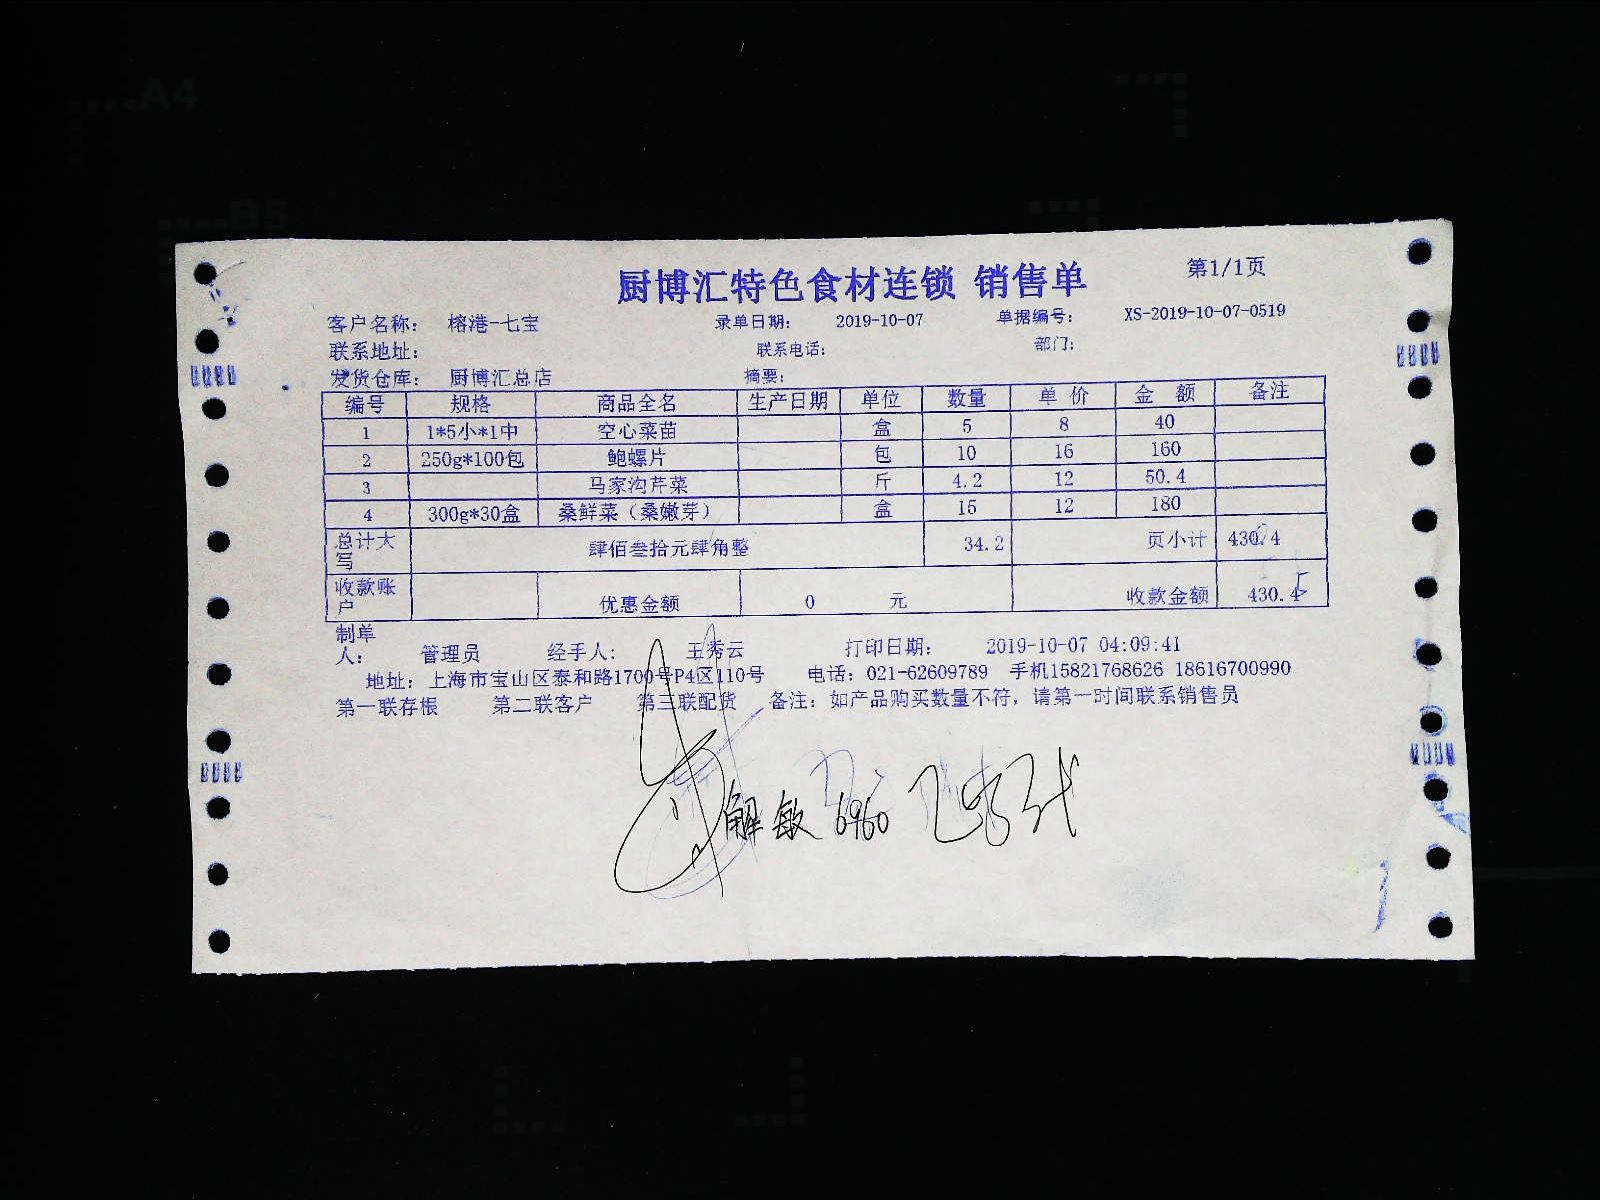 A4
B5
厨博汇特色食材连锁 销售单 第1/1页
客户名称： 榕港-七宝 录单日期： 2019-10-07 单据编号： XS-2019-10-07-0519
联系地址： 联系电话： 部门：
发货仓库： 厨博汇总店 摘要：
编号 规格 商品全名 生产日期 单位 数量 单 价 金 额 备注
1 1*5小*1中 空心菜苗 盒 5 8 40
2 250g*100包 鲍螺片 包 10 16 160
3 马家沟芹菜 斤 4.2 12 50.4
4 300g*30盒 桑鲜菜（桑嫩芽） 盒 15 12 180
总计大写 肆佰叁拾元肆角整 34.2 页小计 430.4
收款账户 优惠金额 0 元 收款金额 430.4
制单人： 管理员 经手人： 王秀云 打印日期： 2019-10-07 04:09:41
地址：上海市宝山区泰和路1700号P4区110号 电话：021-62609789 手机15821768626 18616700990
第一联存根 第二联客户 第三联配货 备注：如产品购买数量不符，请第一时间联系销售员
解敏 6960